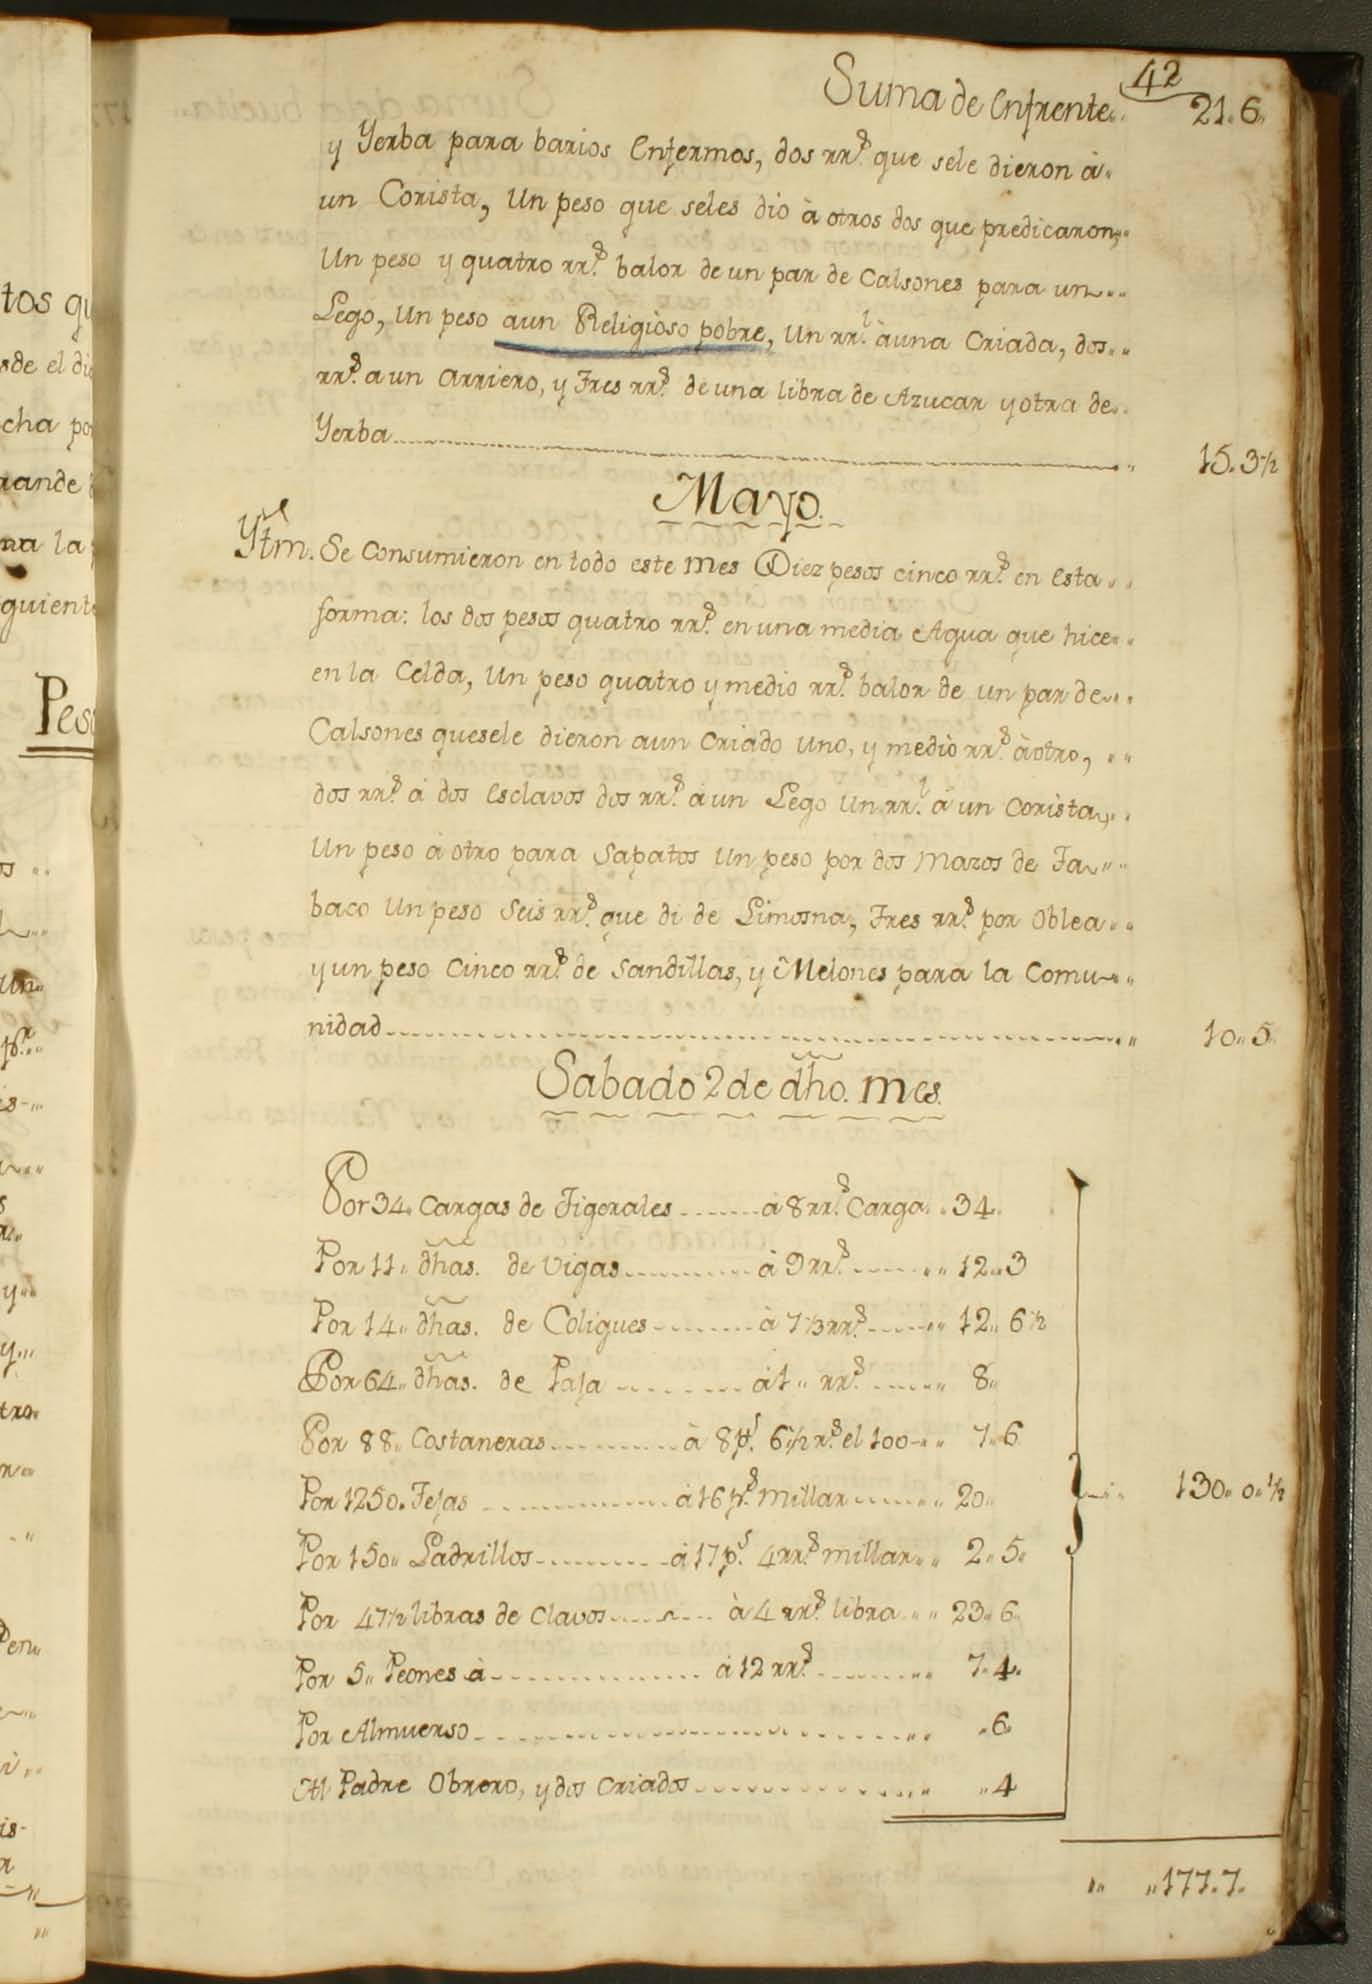 42
Suma de Enfrente.. 21. 6.
y Yerba para barios Enfermos, dos rr.s que sele dieron à.
un Corista, Un peso que seles dio à otros dos que predicaron,..
Un peso y quatro rr.s balor de un par de Calsones para un...
Lego, Un peso aun Religioso pobre, Un rr.l àuna Criada, dos..
rr.s a un Arriero, y Tres rr.s de una libra de Azucar y otra de..
Yerba.................... 15. 3 1/2
Mayo.
Ytm. Se Consumieron en todo este Mes Diez pesos cinco rr.s en Esta..
forma: los dos pesos quatro rr.s en una media Agua que hice..
en la Celda, Un peso quatro y medio rr.s balor de un par de...
Calsones quesele dieron aun Criado uno, y mediò rr.s àotro, ..
dos rr.s a dos Esclavos dos rr.s a un Lego Un rr.l a un Corista,..
Un peso a otro para Sapatos Un peso por dos Mazos de Ta..
baco Un peso Seis rr.s que di de Limosna, Tres rr.s por Oblea..
y un peso Cinco rr.s de Sandillas, y Melones para la Comu..
nidad.................... 10.. 5.
Sabado 2 de dho. mes.
Por 34. Cargas de Tigerales....... à 8 rr.s Carga. . 34.
Por 11.. dhas. de Vigas.......... à 9 rr.s ...... 12.. 3
Por 14.. dhas. de Coligues........ à 7 1/3 rr.s ...... 12.. 6 1/2
Por 64.. dhas. de Paja ........ à 1.. rr.s ...... 8..
Por 88.. Costaneras.......... à 8 p.s 6 1/2 r.s el 100... 7.. 6
Por 1250. Tejas .......... a 16 p.s Millar...... 20..
Por 150.. Ladrillos.......... à 17 p.s 4 rr.s millar.. 2.. 5.
Por 47 1/2 libras de Clavos........ à 4 rr.s libra .. 23.. 6.
Por 5.. Peones à............ a 12 rr.s ........ 7.. 4.
Por Almuerso.................... .. 6.
Al Padre Obrero, y dos Criados............ .. 4
130.. 0.. 1/2
.. .. 177.. 7.